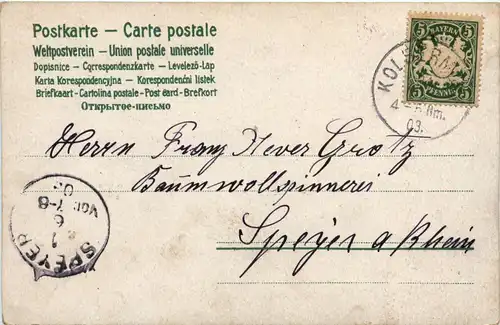 Postkarte – Carte postale
Weltpostverein – Union postale universelle
Dopisnice – Correspondenzkarte – Levelező-Lap
Karta Korespondencyjna – Korespondenčni listek
Briefkaart – Cartolina postale – Post card – Brefkort
Открытое-письмо
BAYERN
5 5
PFENNIG
5 5
4-5 Nm.
03.
Herrn Franz Xever Grotz
Baumwollspinnerei
Speyer a Rhein
SPEYER
1
6
Vor. 7-8